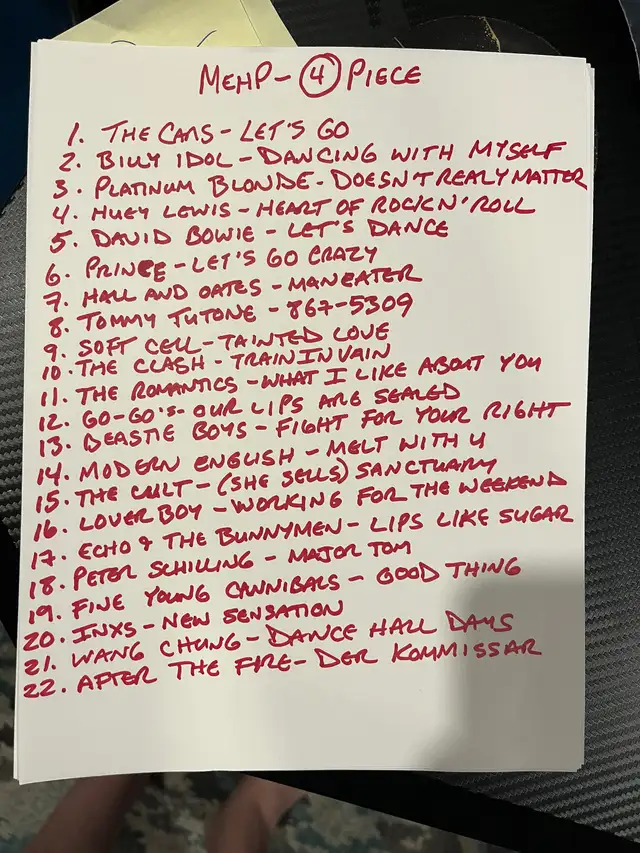 MEHP- 4 PIECE
1. THE CARS - LET'S GO
2. BILLY IDOL - DANCING WITH MYSELF
3. PLATINUM BLONDE - DOESN'T REALY MATTER
4. HUEY LEWIS - HEART OF ROCK N' ROLL
5. DAVID BOWIE - LET'S DANCE
6. PRINCE - LET'S GO CRAZY
7. HALL AND OATES - MANEATER
8. TOMMY TUTONE - 867-5309
9. SOFT CELL - TAINTED LOVE
10. THE CLASH - TRAIN IN VAIN
11. THE ROMANTICS - WHAT I LIKE ABOUT YOU
12. GO-GO'S - OUR LIPS ARE SEALED
13. BEASTIE BOYS - FIGHT FOR YOUR RIGHT
14. MODERN ENGLISH - MELT WITH U
15. THE CULT - (SHE SELLS) SANCTUARY
16. LOVERBOY - WORKING FOR THE WEEKEND
17. ECHO & THE BUNNYMEN - LIPS LIKE SUGAR
18. PETER SCHILLING - MAJOR TOM
19. FINE YOUNG CANNIBALS - GOOD THING
20. INXS - NEW SENSATION
21. WANG CHUNG - DANCE HALL DAYS
22. AFTER THE FIRE - DER KOMMISSAR